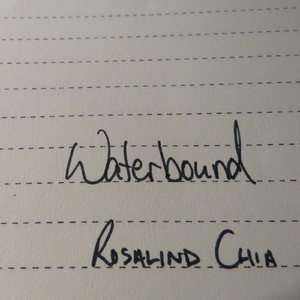 Waterbound
Rosalind Chia